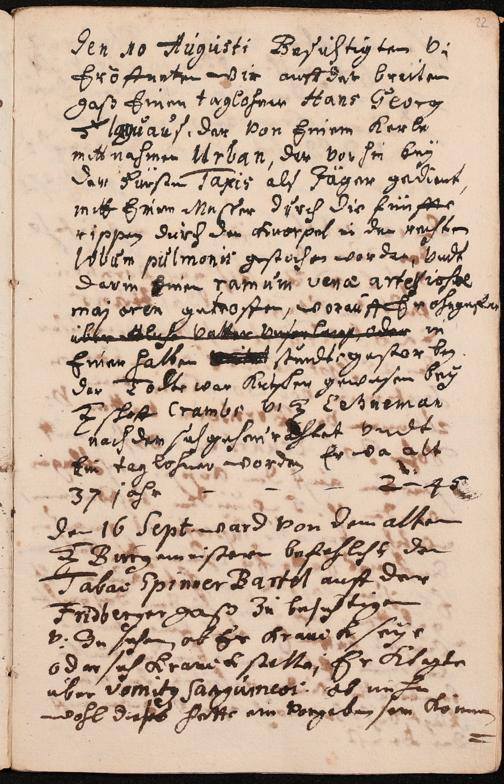 22
Den 10 Augusti Besichtigten v:
Eröffneten wir auff der breiten
gaß Einen taglohner Hans Georg
der Von Einem Kerle
mitt nahmen Urban, der vorhin bey
dem Fürsten Taxis alß Jäger gedient,
mitt Einem Messer durch die fünffte
rippen durch den Knorpel in den rechten
lobum pulmonis gestochen worden, Undt
darin Einen ramum venæ arteriosæ
majorem getroffen, worauff Er ohngefehr
über Etlich Vatter Unser lang, oder in
Einer halben stundt gestorben.
der Todte war Kutscher gewesen bey
H Crambs v: H Lehneman
nach dem sich geheurahtet Undt
Ein taglohner worden Er wa alt
37 jahr - - - 2 - 45
den 16 Sept ward von dem alten
H Burgemeistern befehlicht den
Tabac Spinner Bartel auff der
Fridberger gaß zu besichtigen
v: zu sehen ob Er Kranck seye
oder sich Kranck stelle, Er Klagte
über vomitg sangvineoi: ob nuhn
wohl dieses hette ein vorgeben sein können